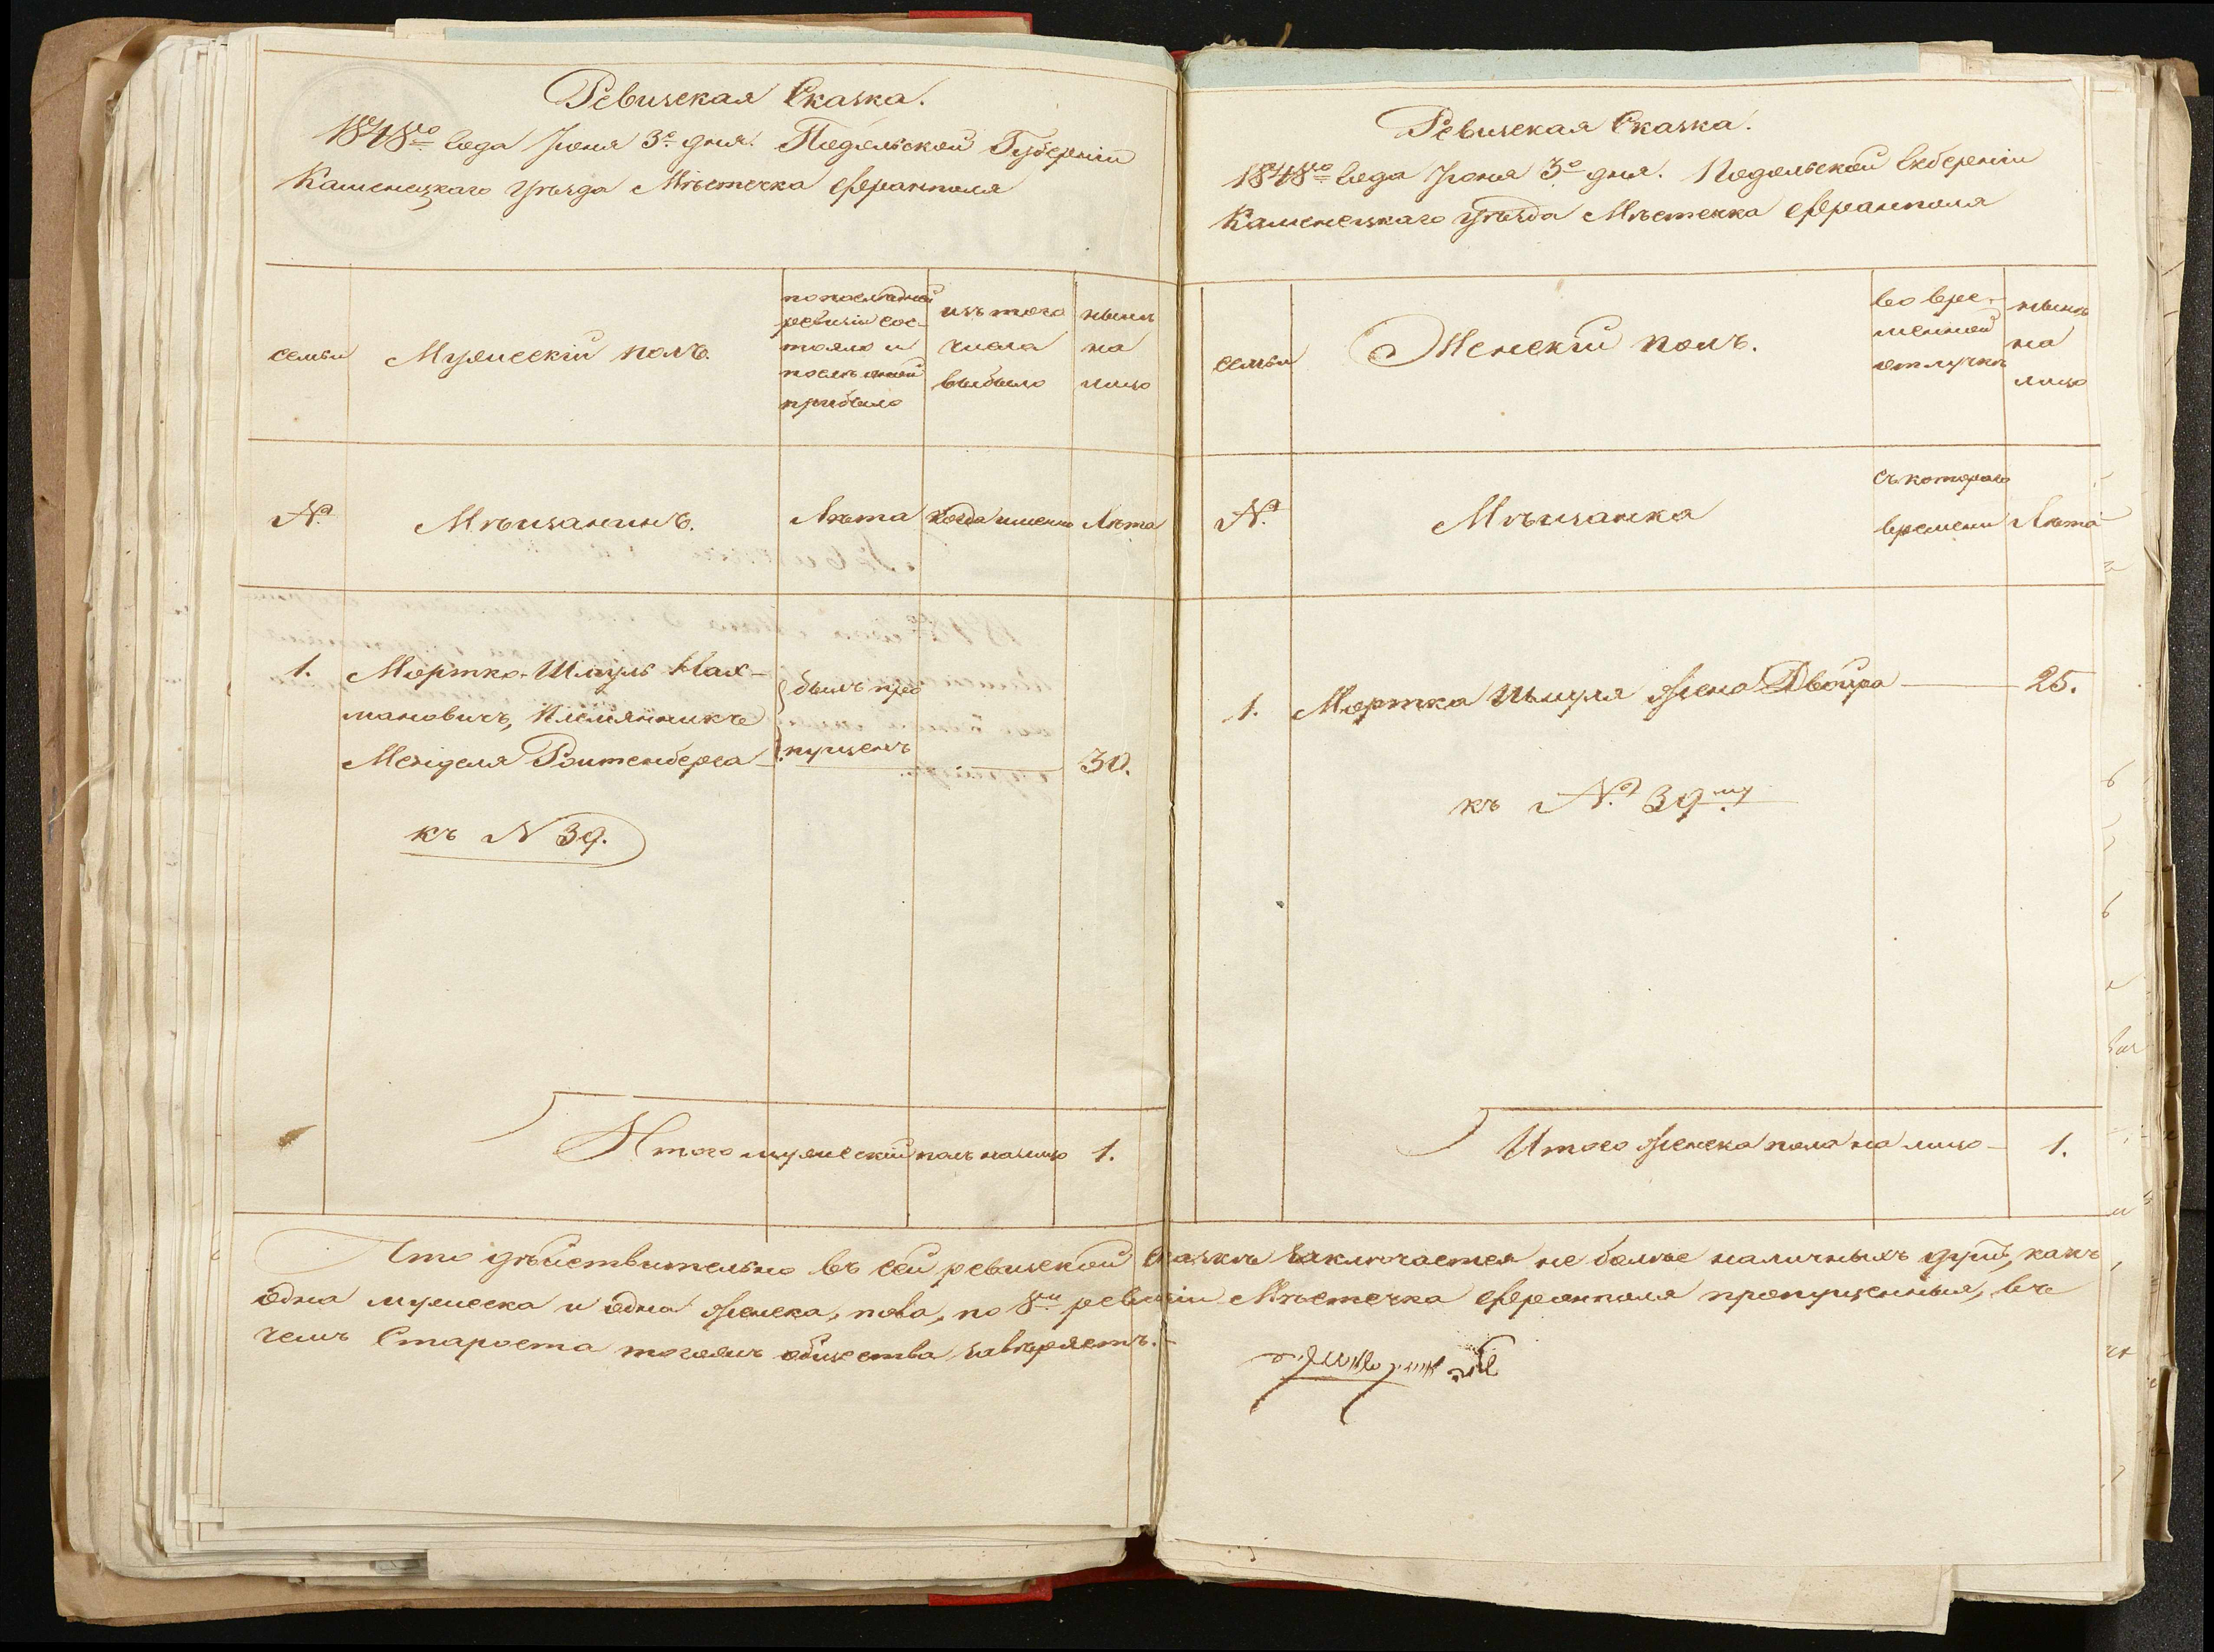 Ревизская Сказка.
1848го Года Іюня 3го дня. Подольской Губерніи
Каменецкаго уѣзда Мѣстечка Франполя
семьи
Мужескій полъ.
по последней
ревизіи сос-
тояло и
послѣ оной
прибыло
изъ того
числа
выбыло
нынѣ
на
лицо
№
Мѣщанинъ.
Лѣта
Когда именно
Лѣта
1. Мортко-Шмуль Нах-
мановичъ, племянникъ
Менделя Роитенберга
былъ про
пущенъ
30.
къ № 39.
Итого мужескій полъ на лицо 1.
Ревизская Сказка.
1848го Года Іюня 3го дня. Подольской Губерніи
Каменецкаго уѣзда Мѣстечка Франполя
семьи
Женскій полъ.
во вре-
менной
отлучкѣ
нынѣ
на
лицо
№
Мѣщанка
съ котораго
времени
Лѣта
1. Мортка Шмуля жена Двойра 25.
къ № 39му
Итого женска пола на лицо 1.
Что дѣйствительно въ сей ревизской Сказкѣ заключается не более наличныхъ душъ, какъ
одна мужеска и одна женска, пола, по 8й ревизіи Мѣстечка Франполя пропущенныя, въ
чемъ Староста тогожъ общества завѣряетъ.